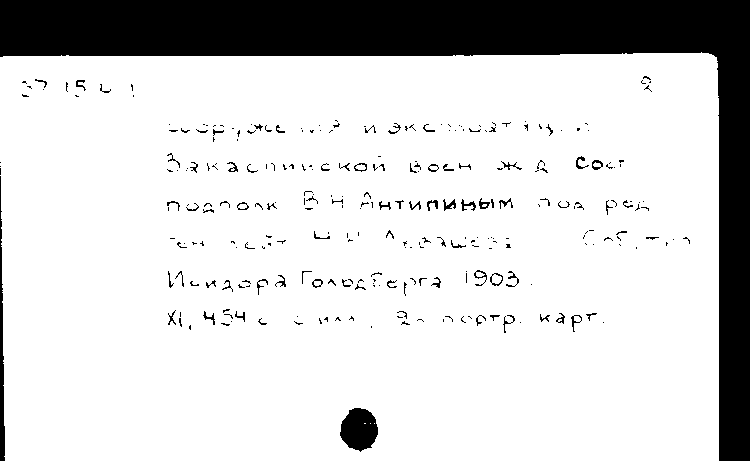 37 15 4 1 2
сооружения и эксплоатации
Закаспийской воен ж д Сост
подполк В Н Антипиным под ред
ген лейт
Исидора Гольдберга 1903.
XI, 454 с с илл, 2 л портр. карт.